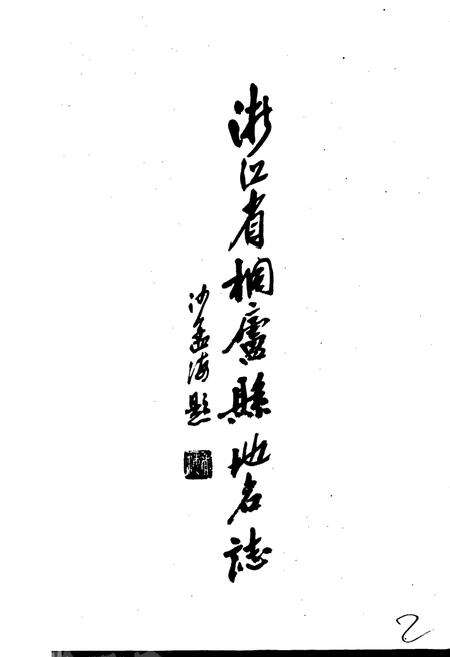 浙江省桐廬縣地名誌
沙孟海題
2